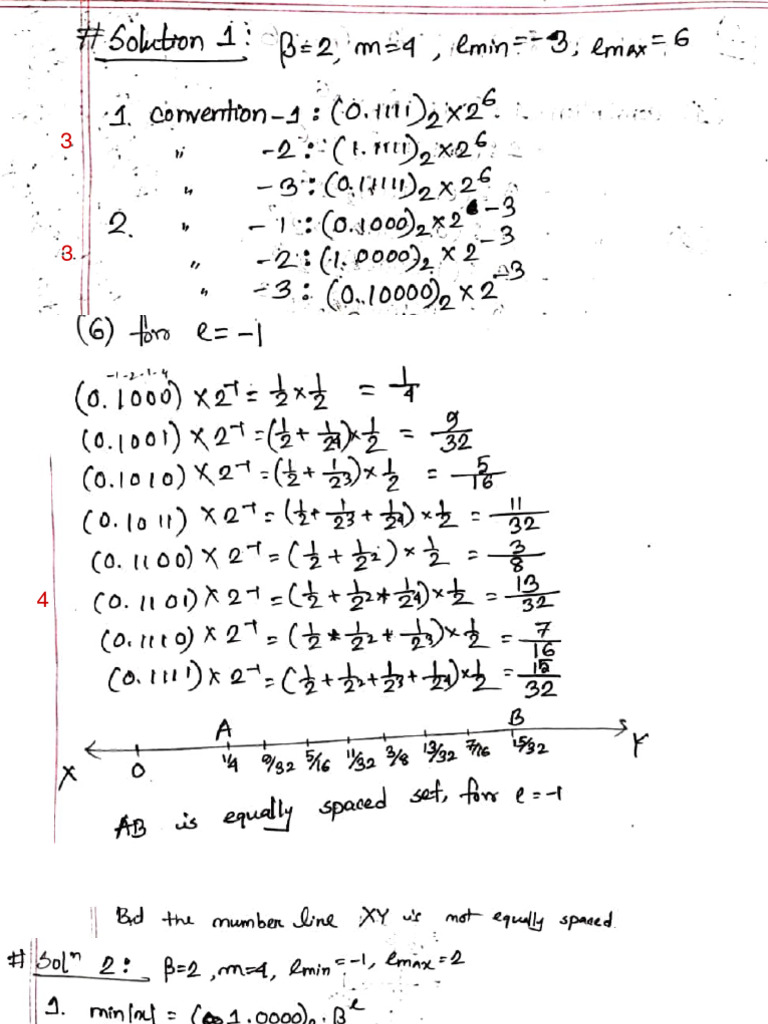 # Solution 1: β=2, m=4, emin=-3, emax=6
1. convention-1: (0.1111)₂×2⁶
3
" -2: (1.1111)₂×2⁶
" -3: (0.11111)₂×2⁶
2. " -1: (0.1000)₂×2⁻³
3.
" -2: (1.0000)₂×2⁻³
" -3: (0.10000)₂×2⁻³
(6) for e=-1
-1-2-1-4
(0.1000)×2⁻¹ = 1/2 × 1/2 = 1/4
(0.1001)×2⁻¹ = (1/2 + 1/2⁴)×1/2 = 9/32
(0.1010)×2⁻¹ = (1/2 + 1/2³)×1/2 = 5/16
(0.1011)×2⁻¹ = (1/2 + 1/2³ + 1/2⁴)×1/2 = 11/32
(0.1100)×2⁻¹ = (1/2 + 1/2²)×1/2 = 3/8
4
(0.1101)×2⁻¹ = (1/2 + 1/2² + 1/2⁴)×1/2 = 13/32
(0.1110)×2⁻¹ = (1/2 + 1/2² + 1/2³)×1/2 = 7/16
(0.1111)×2⁻¹ = (1/2 + 1/2² + 1/2³ + 1/2⁴)×1/2 = 15/32
A B
X 0 1/4 9/32 5/16 11/32 3/8 13/32 7/16 15/32 Y
AB is equally spaced set, for e=-1
But the number line XY is not equally spaced.
# Solⁿ 2: β=2, m=4, emin=-1, emax=2
1. min|x| = (1.0000)₂.βᵉ